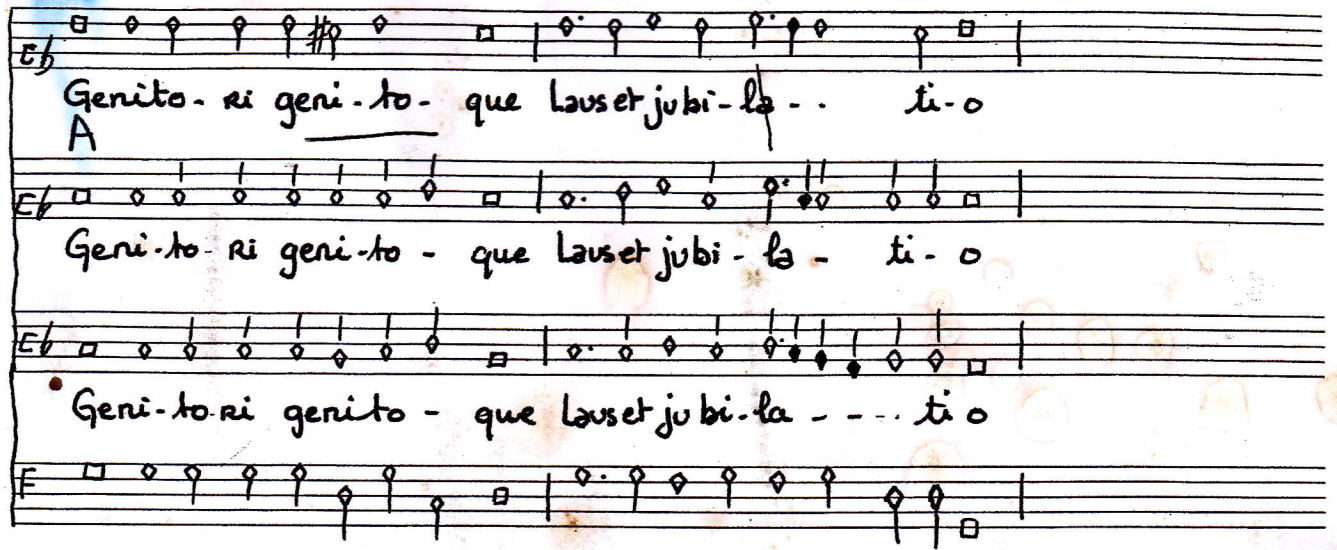 Genito- Ri geni-to- que Laus et jubi-la-- ti-o
A
Geni-to-Ri geni-to- que Laus et jubi-la- ti-o
Geni-to-ri genito- que Laus et jubi-la---- ti o